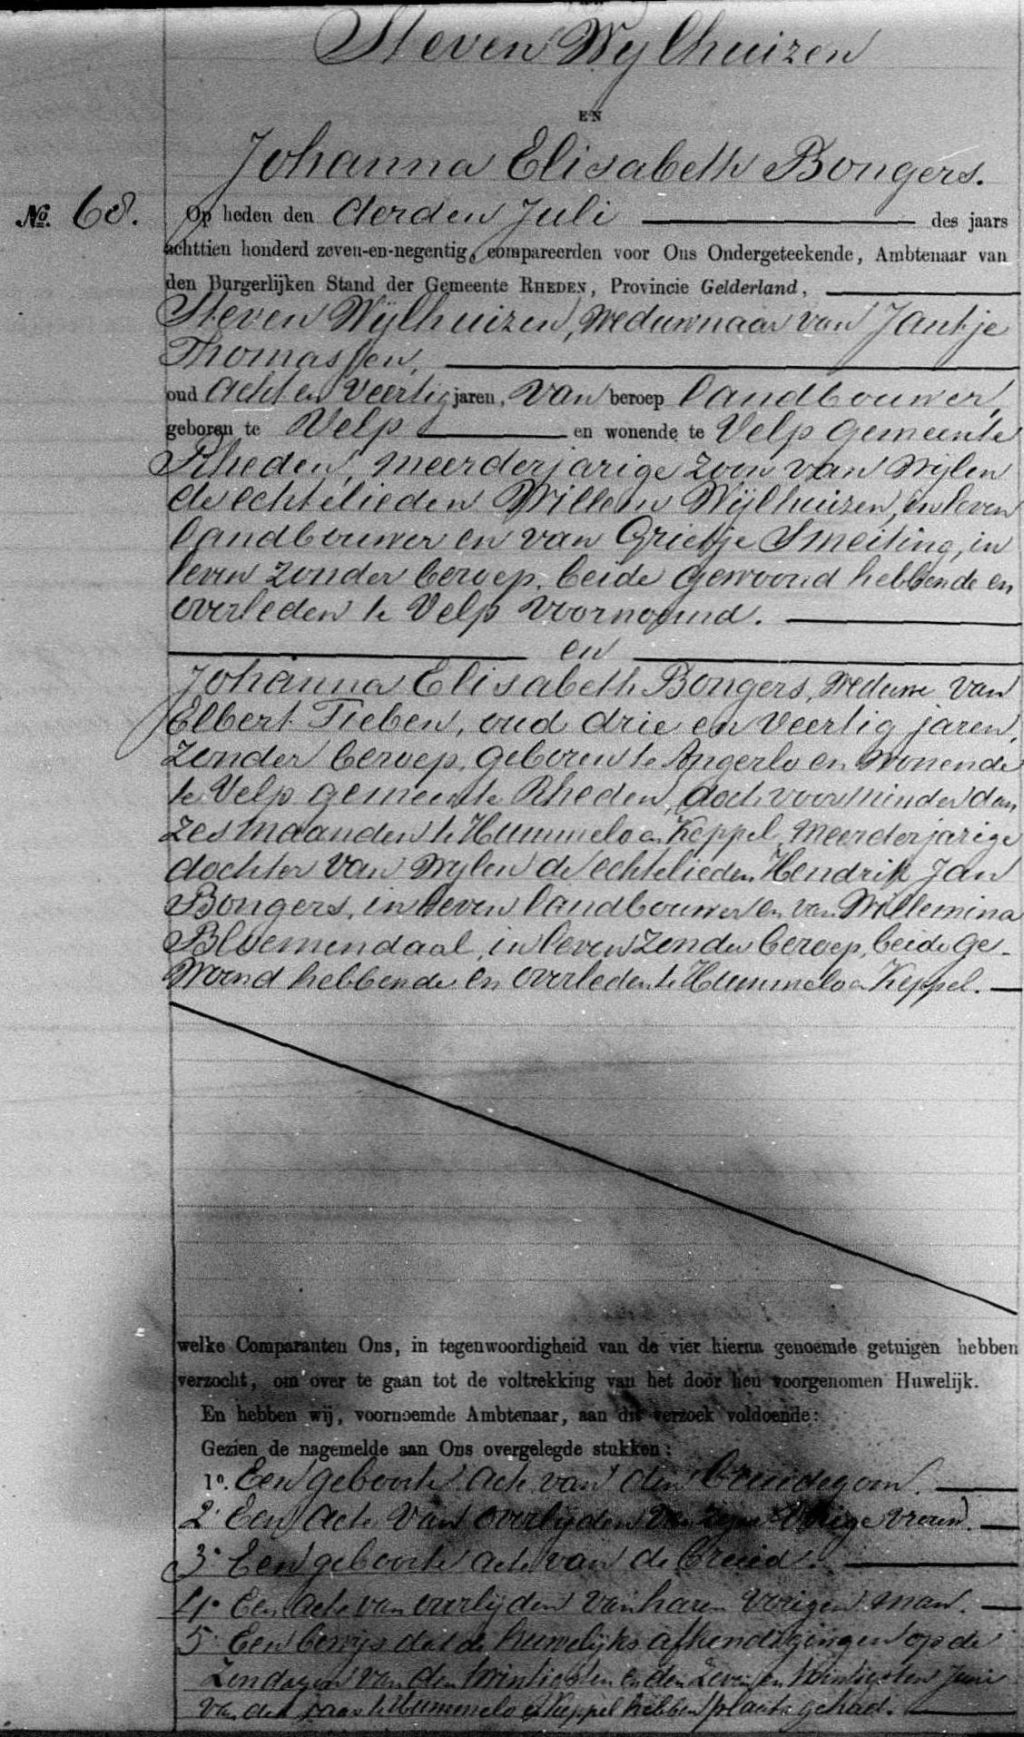 Steven Wÿlhuizen
EN
Johanna Elisabeth Bongers.
No. 68. Op heden den derden Juli des jaars
achttien honderd zeven-en-negentig, compareerden voor Ons Ondergeteekende, Ambtenaar van
den Burgerlijken Stand der Gemeente RHEDEN, Provincie Gelderland,
Steven Wÿlhuizen, weduwnaar van Jantje
Thomassen,
oud acht en veertig jaren, van beroep landbouwer,
geboren te Velp en wonende te Velp gemeente
Rheden, meerderjarige zoon van wijlen
de echtelieden Willem Wÿlhuizen, in leven
landbouwer en van Grietje Smeiting, in
leven zonder beroep, beide gewoond hebbende en
overleden te Velp voornoemd.
en
Johanna Elisabeth Bongers, weduwe van
Elbert Tieben, oud drie en veertig jaren,
zonder beroep, geboren te Angerlo en wonende
te Velp gemeente Rheden, doch voor minder dan
zes maanden te Hummelo en Keppel, meerderjarige
dochter van wijlen de echtelieden Hendrik Jan
Bongers, in leven landbouwer en van Willemina
Bloemendaal, in leven zonder beroep, beide ge-
woond hebbende en overleden te Hummelo en Keppel.
welke Comparanten Ons, in tegenwoordigheid van de vier hierna genoemde getuigen hebben
verzocht, om over te gaan tot de voltrekking van het door hen voorgenomen Huwelijk.
En hebben wij, voornoemde Ambtenaar, aan dit verzoek voldoende:
Gezien de nagemelde aan Ons overgelegde stukken:
1o. Een geboorte acte van den bruidegom.
2o Een acte van overlijden van zijne vorige vrouw.
3o Een geboorte acte van de bruid.
4o Een acte van overlijden van haren vorigen man.
5o Een bewijs dat de huwelijks afkondigingen op de
Zondagen van den twintigsten en den zeven en twintigsten Juni
van dit jaar te Hummelo en Keppel hebben plaats gehad.